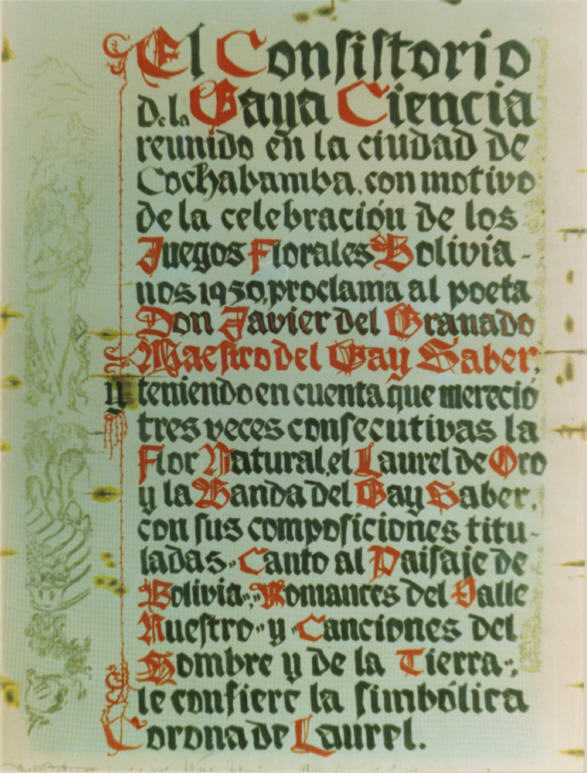 El Consistorio
de la Gaya Ciencia
reunido en la ciudad de
Cochabamba, con motivo
de la celebración de los
Juegos Florales Bolivia-
nos 1950, proclama al poeta
Don Javier del Granado
Maestro del Gay Saber,
y teniendo en cuenta que mereció
tres veces consecutivas la
Flor Natural, el Laurel de Oro
y la Banda del Gay Saber,
con sus composiciones titu-
ladas "Canto al Paisaje de
Bolivia", "Romances del Valle
Nuestro" y "Canciones del
Hombre y de la Tierra",
le confiere la simbólica
Corona de Laurel.